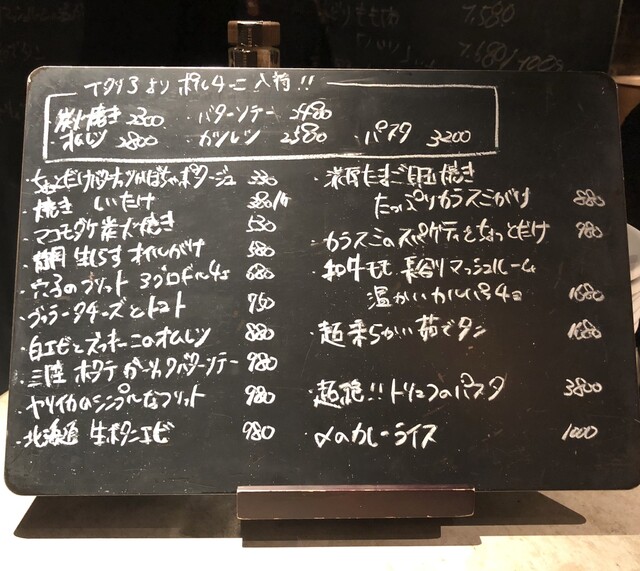 イタリアよりポルチーニ入荷!!
・炭火焼き 2300 ・バターソテー 2480
・オムレツ 2800 ・カツレツ 2580 ・パスタ 3200
・ちょっとだけバターナッツかぼちゃポタージュ 330
・焼き しいたけ 380/ケ
・マコモダケ炭火焼き 530
・静岡 生しらす オイルがけ 580
・穴子のフリット 3ブロドポルチーニ 680
・ブッラータチーズとトマト 750
・白エビとズッキーニのオムレツ 880
・三陸 ホタテ ガーリックバターソテー 980
・ヤリイカのシンプルなフリット 980
・北海道 生ボタンエビ 980
・濃厚たまご 目玉焼き
たっぷりカラスミがけ 880
・カラスミのスパゲティをちょっとだけ 980
・和牛モモ 長谷川マッシュルーム
温かいカルパッチョ 1680
・超柔らかい茹でタン 1680
・超絶!! トリュフのパスタ 3800
・〆のカレーライス 1000
7.580